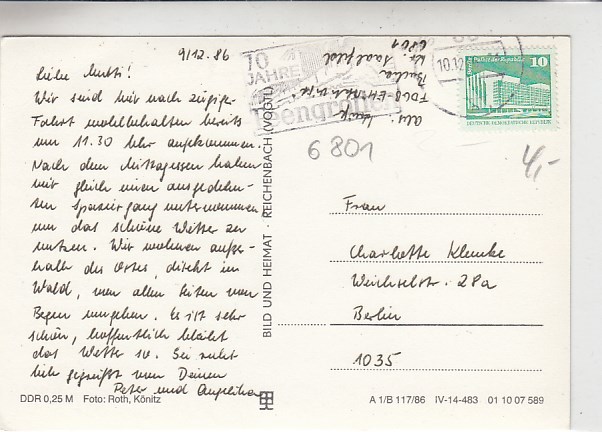 9/12.86
Liebe Mutti!
Wir sind wir nach zügiger
Fahrt wohlbehalten bereits
um 11.30 Uhr angekommen.
Nach dem Mittagessen haben
wir gleich einen ausgedehn-
ten Spaziergang unternommen
um das schöne Wetter zu
nutzen. Wir wohnen außer-
halb des Ortes, direkt im
Wald, von allen Seiten von
Bergen umgeben. Es ist sehr
schön, hoffentlich bleibt
das Wetter so. Sei recht
lieb gegrüßt von Deinen
Peter und Angelika
DDR 0,25 M Foto: Roth, Könitz
BILD UND HEIMAT · REICHENBACH (VOGTL)
70
JAHRE
Abs:
FDGB-EH
Kr. Saalfeld
6801
10.12
Palast der Republik
10
DEUTSCHE DEMOKRATISCHE REPUBLIK
6801
4,-
Frau
Charlotte Klemke
Weichselstr. 28a
Berlin
1035
A 1/B 117/86 IV-14-483 01 10 07 589